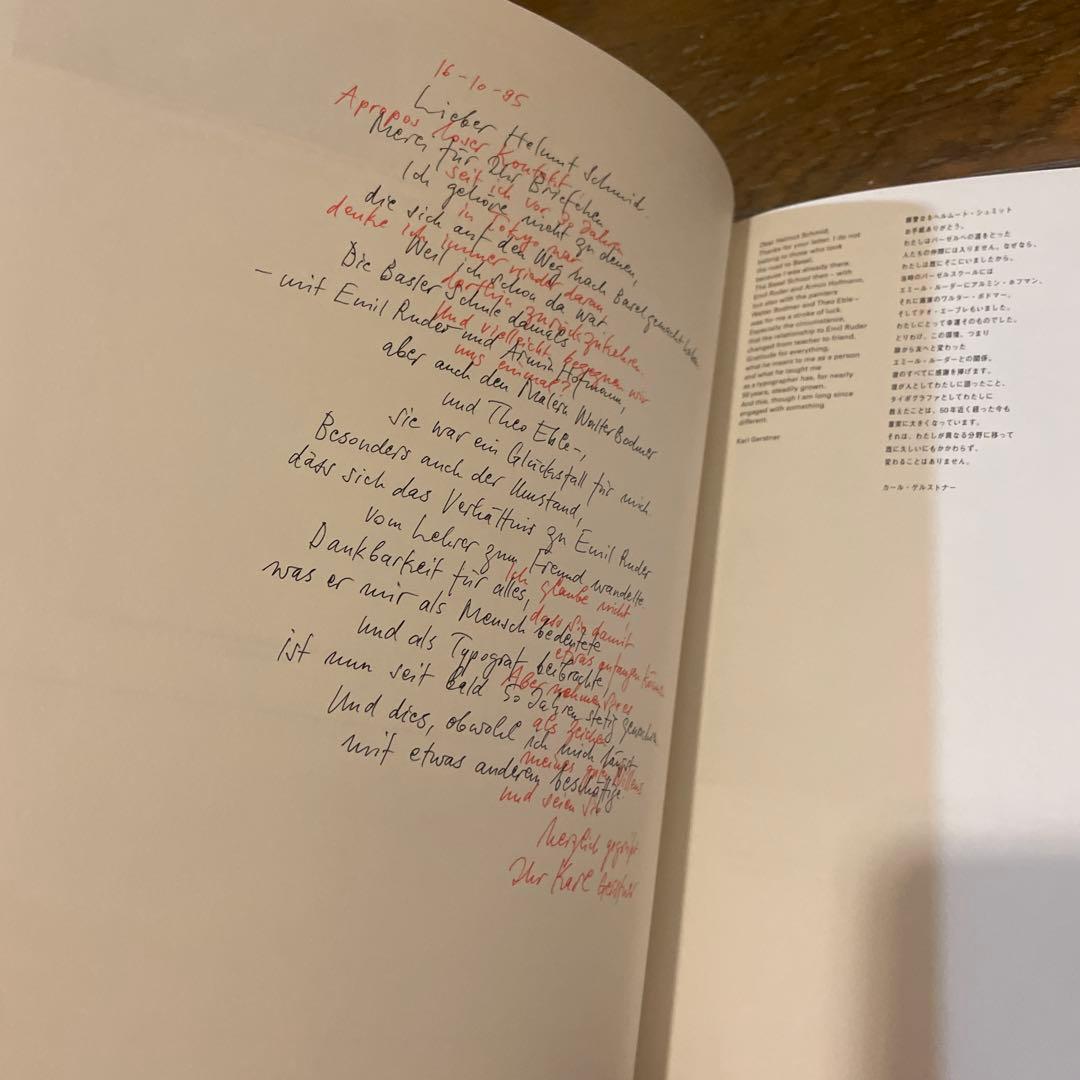 16-10-95
Lieber Helmut Schmid.
Apropos loser Kontakt
Merci für Ihr Briefchen
seit ich vor 30 Jahren
Ich gehöre nicht zu denen,
in Tokyo war
die sich auf den Weg nach Basel gemacht haben
denke ich immer wieder daran
Weil ich schon da war
dorthin zurückzukehren.
Die Basler Schule damals
Und vielleicht begegnen wir
– mit Emil Ruder und Armin Hofmann,
uns einmal?
aber auch den Malern Walter Bodmer
und Theo Eble –,
sie war ein Glücksfall für mich.
Besonders auch der Umstand,
dass sich das Verhältnis zu Emil Ruder
vom Lehrer zum Freund wandelte.
Ich glaube nicht,
Dankbarkeit für alles,
dass Sie damit
was er mir als Mensch bedeutete
etwas anfangen können
und als Typograf beibrachte,
Aber nehmen Sie es
ist nun seit bald 50 Jahren stetig gewachsen
als Zeichen
Und dies, obwohl ich mich längst
meines guten Willens
mit etwas anderem beschäftige.
und seien Sie
herzlich gegrüsst
Ihr Karl Gerstner
Dear Helmut Schmid,
Thanks for your letter. I do not
belong to those who took
the road to Basel,
because I was already there.
The Basel School then – with
Emil Ruder and Armin Hofmann,
but also with the painters
Walter Bodmer and Theo Eble –
was for me a stroke of luck.
Especially the circumstance,
that the relationship to Emil Ruder
changed from teacher to friend.
Gratitude for everything,
what he meant to me as a person
and what he taught me
as a typographer has, for nearly
50 years, steadily grown.
And this, though I am long since
engaged with something
different.
Karl Gerstner
親愛なるヘルムート・シュミット
お手紙ありがとう。
わたしはバーゼルへの道をとった
人たちの仲間には入りません。なぜなら、
わたしは既にそこにいましたから。
当時のバーゼルスクールには
エミール・ルーダーにアルミン・ホフマン、
それに画家のワルター・ボドマー、
そしてテオ・エーブレもいました。
わたしにとって幸運そのものでした。
とりわけ、この環境、つまり
師から友へと変わった
エミール・ルーダーとの関係。
彼のすべてに感謝を捧げます。
彼が人としてわたしに語ったこと、
タイポグラファとしてわたしに
教えたことは、50年近く経った今も
着実に大きくなっています。
それは、わたしが異なる分野に移って
既に久しいにもかかわらず、
変わることはありません。
カール・ゲルストナー